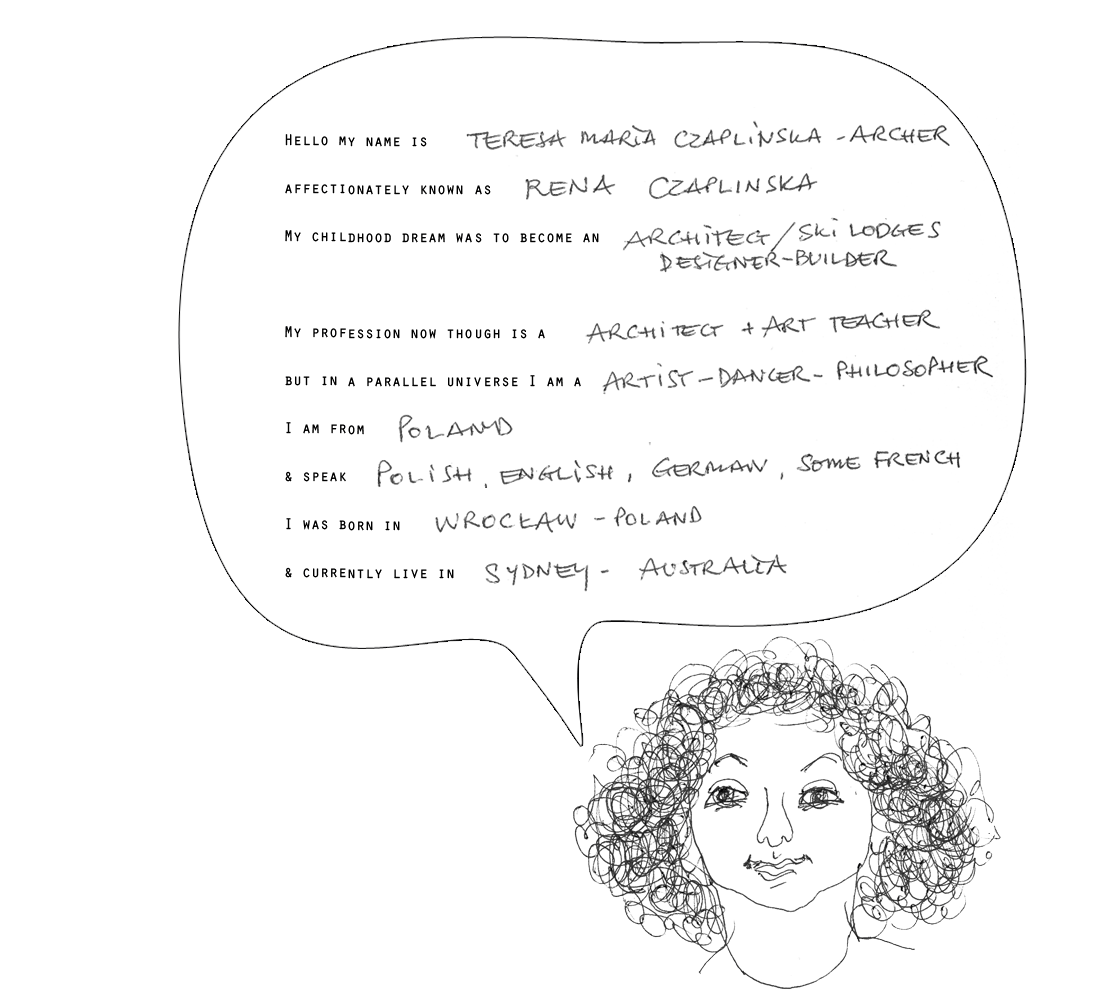 HELLO MY NAME IS TERESA MARIA CZAPLINSKA - ARCHER
AFFECTIONATELY KNOWN AS RENA CZAPLINSKA
MY CHILDHOOD DREAM WAS TO BECOME AN ARCHITECT / SKI LODGES
DESIGNER-BUILDER
MY PROFESSION NOW THOUGH IS A ARCHITECT + ART TEACHER
BUT IN A PARALLEL UNIVERSE I AM A ARTIST - DANCER - PHILOSOPHER
I AM FROM POLAND
& SPEAK POLISH, ENGLISH, GERMAN, SOME FRENCH
I WAS BORN IN WROCŁAW - POLAND
& CURRENTLY LIVE IN SYDNEY - AUSTRALIA